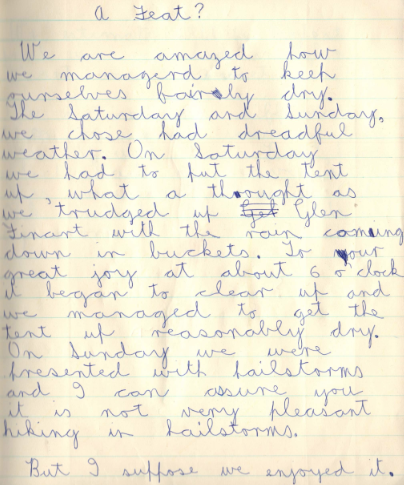 A Feat?
We are amazed how
we managerd to keep
ourselves fairly dry.
The Saturday and Sunday,
we chose had dreadful
weather. On Saturday
we had to put the tent
up, what a thought as
we trudged up Glen
Finart with the rain coming
down in buckets. To our
great joy at about 6 o'clock
it began to clear up and
we managed to get the
tent up reasonably dry.
On Sunday we were
presented with hailstorms
and I can assure you
it is not very pleasant
hiking in hailstorms.
But I suppose we enjoyed it.